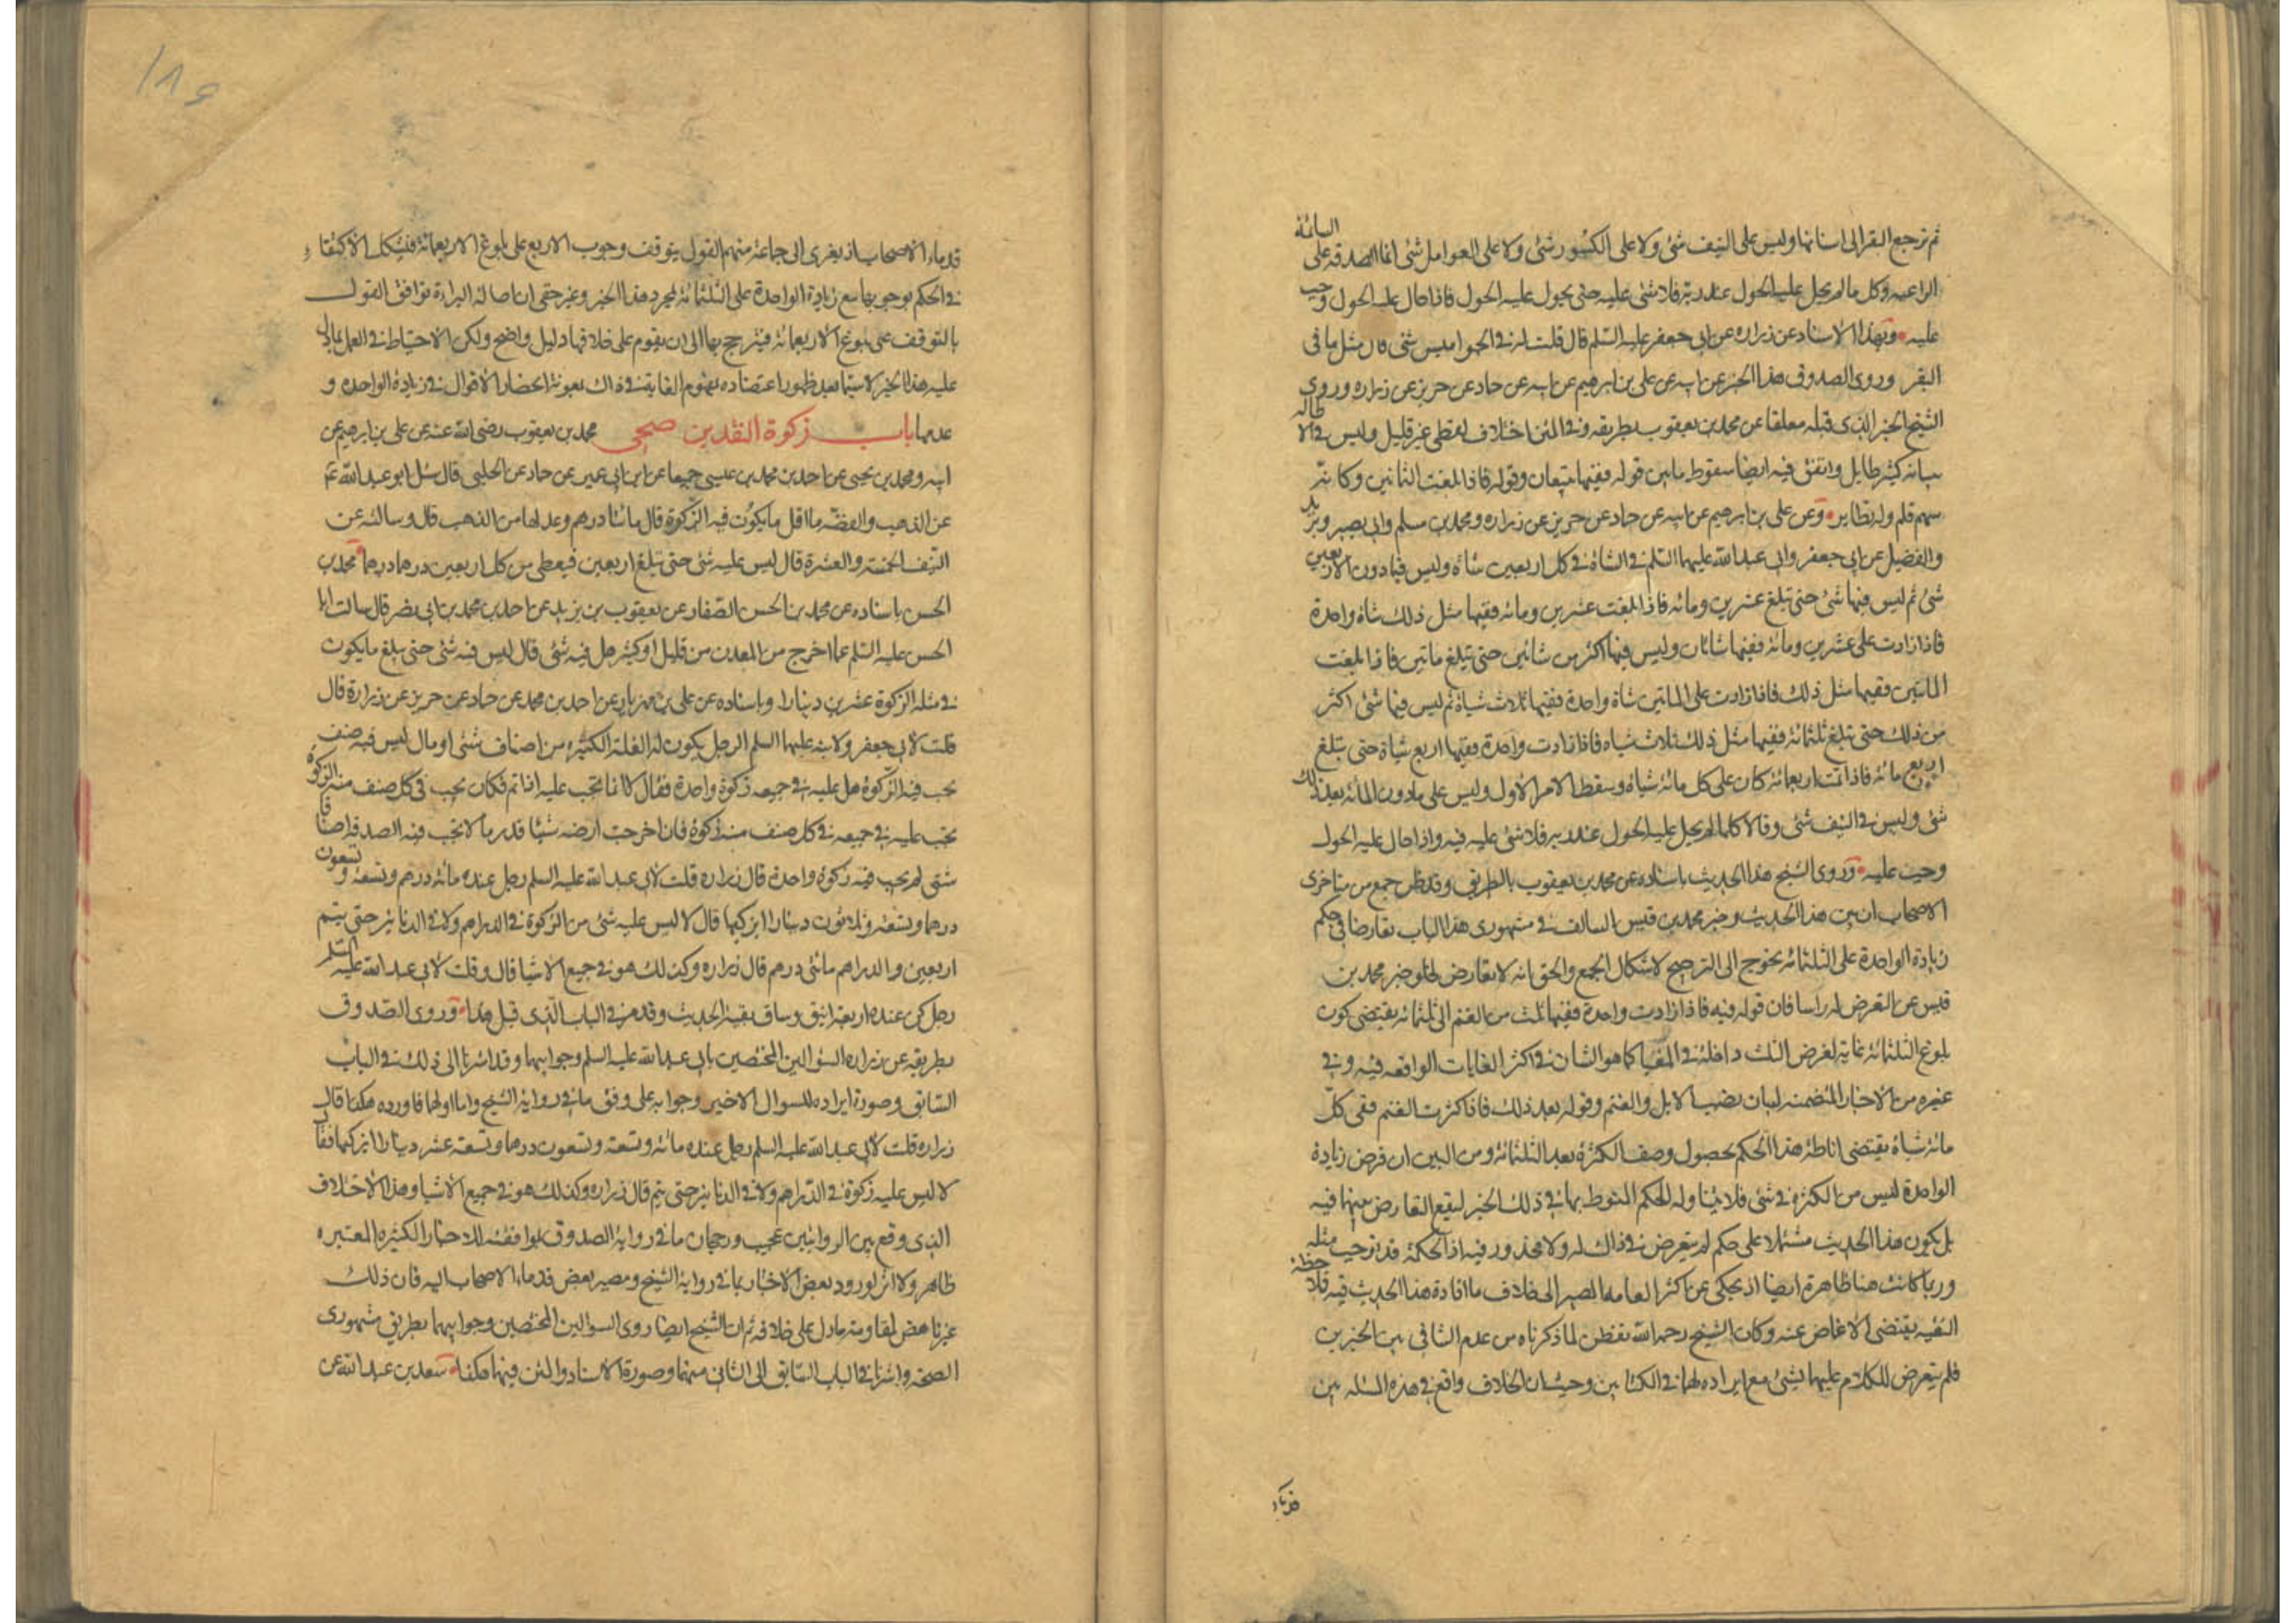 ثم ترجع البقر الى اسنانها وليس على النيف شئ ولا على الكسور شئ ولا على العوامل شئ انما الصدقة على السائمة
الراعيه وكل ما لم يحل عليه الحول عند ربه فلا شئ عليه حتى يحول عليه الحول فاذا حال عليه الحول وجب
عليه وبهذا الاسناد عن زراره عن ابى جعفر عليه السلم قال قلت له فى الجواميس شئ قال مثل ما فى
البقر وروى الصدوق هذا الخبر عن ابيه عن على بن ابرهيم عن ابيه عن حماد عن حريز عن زراره وروى
الشيخ الخبر الذى قبله معلقا عن محمد بن يعقوب بطريقه وفى المتن اختلاف لفظى غير قليل وليس فى الا طاله
ببيانه كثير طايل واتفق فيه ايضا سقوط ما بين قوله ففيها تبيعان وقوله فاذا بلغت الثمانين وكانه
سهم قلم وله نظاير وعن على بن ابرهيم عن ابيه عن حماد عن حريز عن زراره ومحمد بن مسلم وابى بصير وبريد
والفضيل عن ابى جعفر وابى عبد الله عليهما السلم فى الشاة فى كل اربعين شاة شاة وليس فيما دون الاربعين
شئ ثم ليس فيها شئ حتى تبلغ عشرين ومائه فاذا بلغت عشرين ومائه ففيها مثل ذلك شاة واحدة
فاذا زادت على عشرين ومائه ففيها شاتان وليس فيها اكثر من شاتين حتى تبلغ ماتين فاذا بلغت
الماتين ففيها مثل ذلك فاذا زادت على الماتين شاة واحدة ففيها ثلاث شياة ثم ليس فيها شئ اكثر
من ذلك حتى تبلغ ثلثمائه ففيها مثل ذلك ثلاث شياه فاذا زادت واحدة ففيها اربع شياة حتى تبلغ
اربع مائه فاذا تمت اربعمائه كان على كل مائه شاة وسقط الامر الاول وليس على ما دون المائه بعد ذلك
شئ وليس فى النيف شئ وقالا كلما لم يحل عليه الحول عند ربه فلا شئ عليه فيه واذا حال عليه الحول
وجب عليه وروى الشيخ هذا الحديث باسناده عن محمد بن يعقوب بالطريق وقد ظن جمع من متاخرى
الاصحاب ان بين هذا الحديث وخبر محمد بن قيس السالف فى مشهورى هذا الباب تعارضا فى حكم
زيادة الواحدة على الثلثمائه يحوج الى الترجيح لاشكال الجمع والحق انه لا تعارض لخلو خبر محمد بن
قيس عن التعرض له راسا فان قوله فيه فاذا زادت واحدة ففيها ثلث من الغنم الى ثلثمائه يقتضى كون
بلوغ الثلثمائه غاية لفرض الثلث داخله فى المغيا كما هو الشان فى اكثر الغايات الواقعه فيه وفى
غيره من الاخبار المتضمنه لبيان نصب الابل والغنم وقوله بعد ذلك فاذا كثرت الغنم ففى كل
مائه شاة يقتضى اناطة هذا الحكم بحصول وصف الكثرة بعد الثلثمائه ومن البين ان فرض زيادة
الواحدة ليس من الكثرة فى شئ فلا يتناوله الحكم المنوط بها فى ذلك الخبر ليقع التعارض بينهما فيه
بل يكون هذا الحديث مشتملا على حكم لم يتعرض فى ذاك له ولا محذور فيه اذ الحكمة قد توجب مثله
وربما كانت هنا ظاهرة ايضا اذ يحكى عن اكثر العامه المصير الى خلاف ما افاده هذا الحديث فيه فلاحظه
التقيه يقتضى الاغماض عنه وكان الشيخ رحمه الله تفطن لما ذكرناه من عدم التنافى بين الخبرين
فلم يتعرض للكلام عليهما بشئ مع ايراده لهما فى الكتابين وحيث ان الخلاف واقع فى هذه المسئله بين
قدماء
قدماء الاصحاب اذ يعزى الى جماعة منهم القول بتوقف وجوب الاربع على بلوغ الاربعمائة فيشكل الاكتفاء
فى الحكم بوجوبها مع زيادة الواحدة على الثلثمائه بمجرد هذا الخبر وغير خفى ان اصالة البراءة توافق القول
بالتوقف على بلوغ الاربعمائه فيترجح بها الى ان يقوم على خلافها دليل واضح ولكن الاحتياط فى العمل بما دل
عليه هذا الخبر لا سيما بعد ظهور اعتضاده بمفهوم الغاية فى ذاك بمعونة انحصار الاقوال فى زيادة الواحده و
عدمها باب زكوة النقدين صحى محمد بن يعقوب رضى الله عنه عن على بن ابرهيم عن
ابيه ومحمد بن يحيى عن احمد بن محمد بن عيسى جميعا عن ابن ابى عمير عن حماد عن الحلبى قال سئل ابو عبد الله ع
عن الذهب والفضه ما اقل ما يكون فيه الزكوة قال مائتا درهم وعدلها من الذهب قال وسالته عن
النيف الخمسة والعشرة قال ليس عليه شئ حتى تبلغ اربعين فيعطى من كل اربعين درهما درهما محمد بن
الحسن باسناده عن محمد بن الحسن الصفار عن يعقوب بن يزيد عن احمد بن محمد بن ابى نصر قال سالت ابا
الحسن عليه السلم عما اخرج من المعدن من قليل او كثير هل فيه شئ قال ليس فيه شئ حتى يبلغ ما يكون
فى مثله الزكوة عشرين دينارا وباسناده عن على بن مهزيار عن احمد بن محمد عن حماد عن حريز عن زرارة قال
قلت لابى جعفر ولابنه عليهما السلم الرجل يكون له الغلة الكثيره من اصناف شتى او مال ليس فيه صنف
تجب فيه الزكوة هل عليه فى جميعه زكوة واحدة فقال لا انما تجب عليه اذا تم فكان يجب فى كل صنف منه الزكوة
تجب عليه فى جميعه فى كل صنف منه زكوة فان اخرجت ارضه شيئا قدر ما لا تجب فيه الصدقه اصنافا
شتى لم يجب فيه زكوة واحدة قال زراره قلت لابى عبد الله عليه السلم رجل عنده مائه درهم وتسعه وتسعون
درهما وتسعه وثلاثون دينارا ايزكيها قال لا ليس عليه شئ من الزكوة فى الدراهم ولا فى الدنانير حتى يتم
اربعين والدراهم مائتى درهم قال زراره وكذلك هو فى جميع الاشيا قال وقلت لابى عبد الله عليه السلم
رجل كن عنده اربعة اينق وساق بقية الحديث وقد مر فى الباب الذى قبل هذا وروى الصدوق
بطريقه عن زراره السؤالين المختصين بابى عبد الله عليه السلم وجوابيهما وقد اشرنا الى ذلك فى الباب
السابق وصورة ايراده للسوال الاخير وجوابه على وفق ما فى رواية الشيخ واما اولهما فاورده هكذا قال
زراره قلت لابى عبد الله عليه السلم رجل عنده مائه وتسعة وتسعون درهما وتسعة عشر دينارا ايزكيها فقال
لا ليس عليه زكوة فى الدراهم ولا فى الدنانير حتى يتم قال زراره وكذلك هو فى جميع الاشيا وهذا الاختلاف
الذى وقع بين الروايتين عجيب ورجحان ما فى رواية الصدوق لموافقته للاخبار الكثيره المعتبره
ظاهر ولا اثر لورود بعض الاخبار بما فى رواية الشيخ ومصير بعض قدماء الاصحاب اليه فان ذلك
غير ناهض لمقاومة ما دل على خلافه ثم ان الشيخ ايضا روى السوالين المختصين وجوابيهما بطريق مشهورى
الصحه واشرنا فى الباب السابق الى الثانى منهما وصورة الاسناد والمتن فيهما هكذا سعد بن عبد الله عن